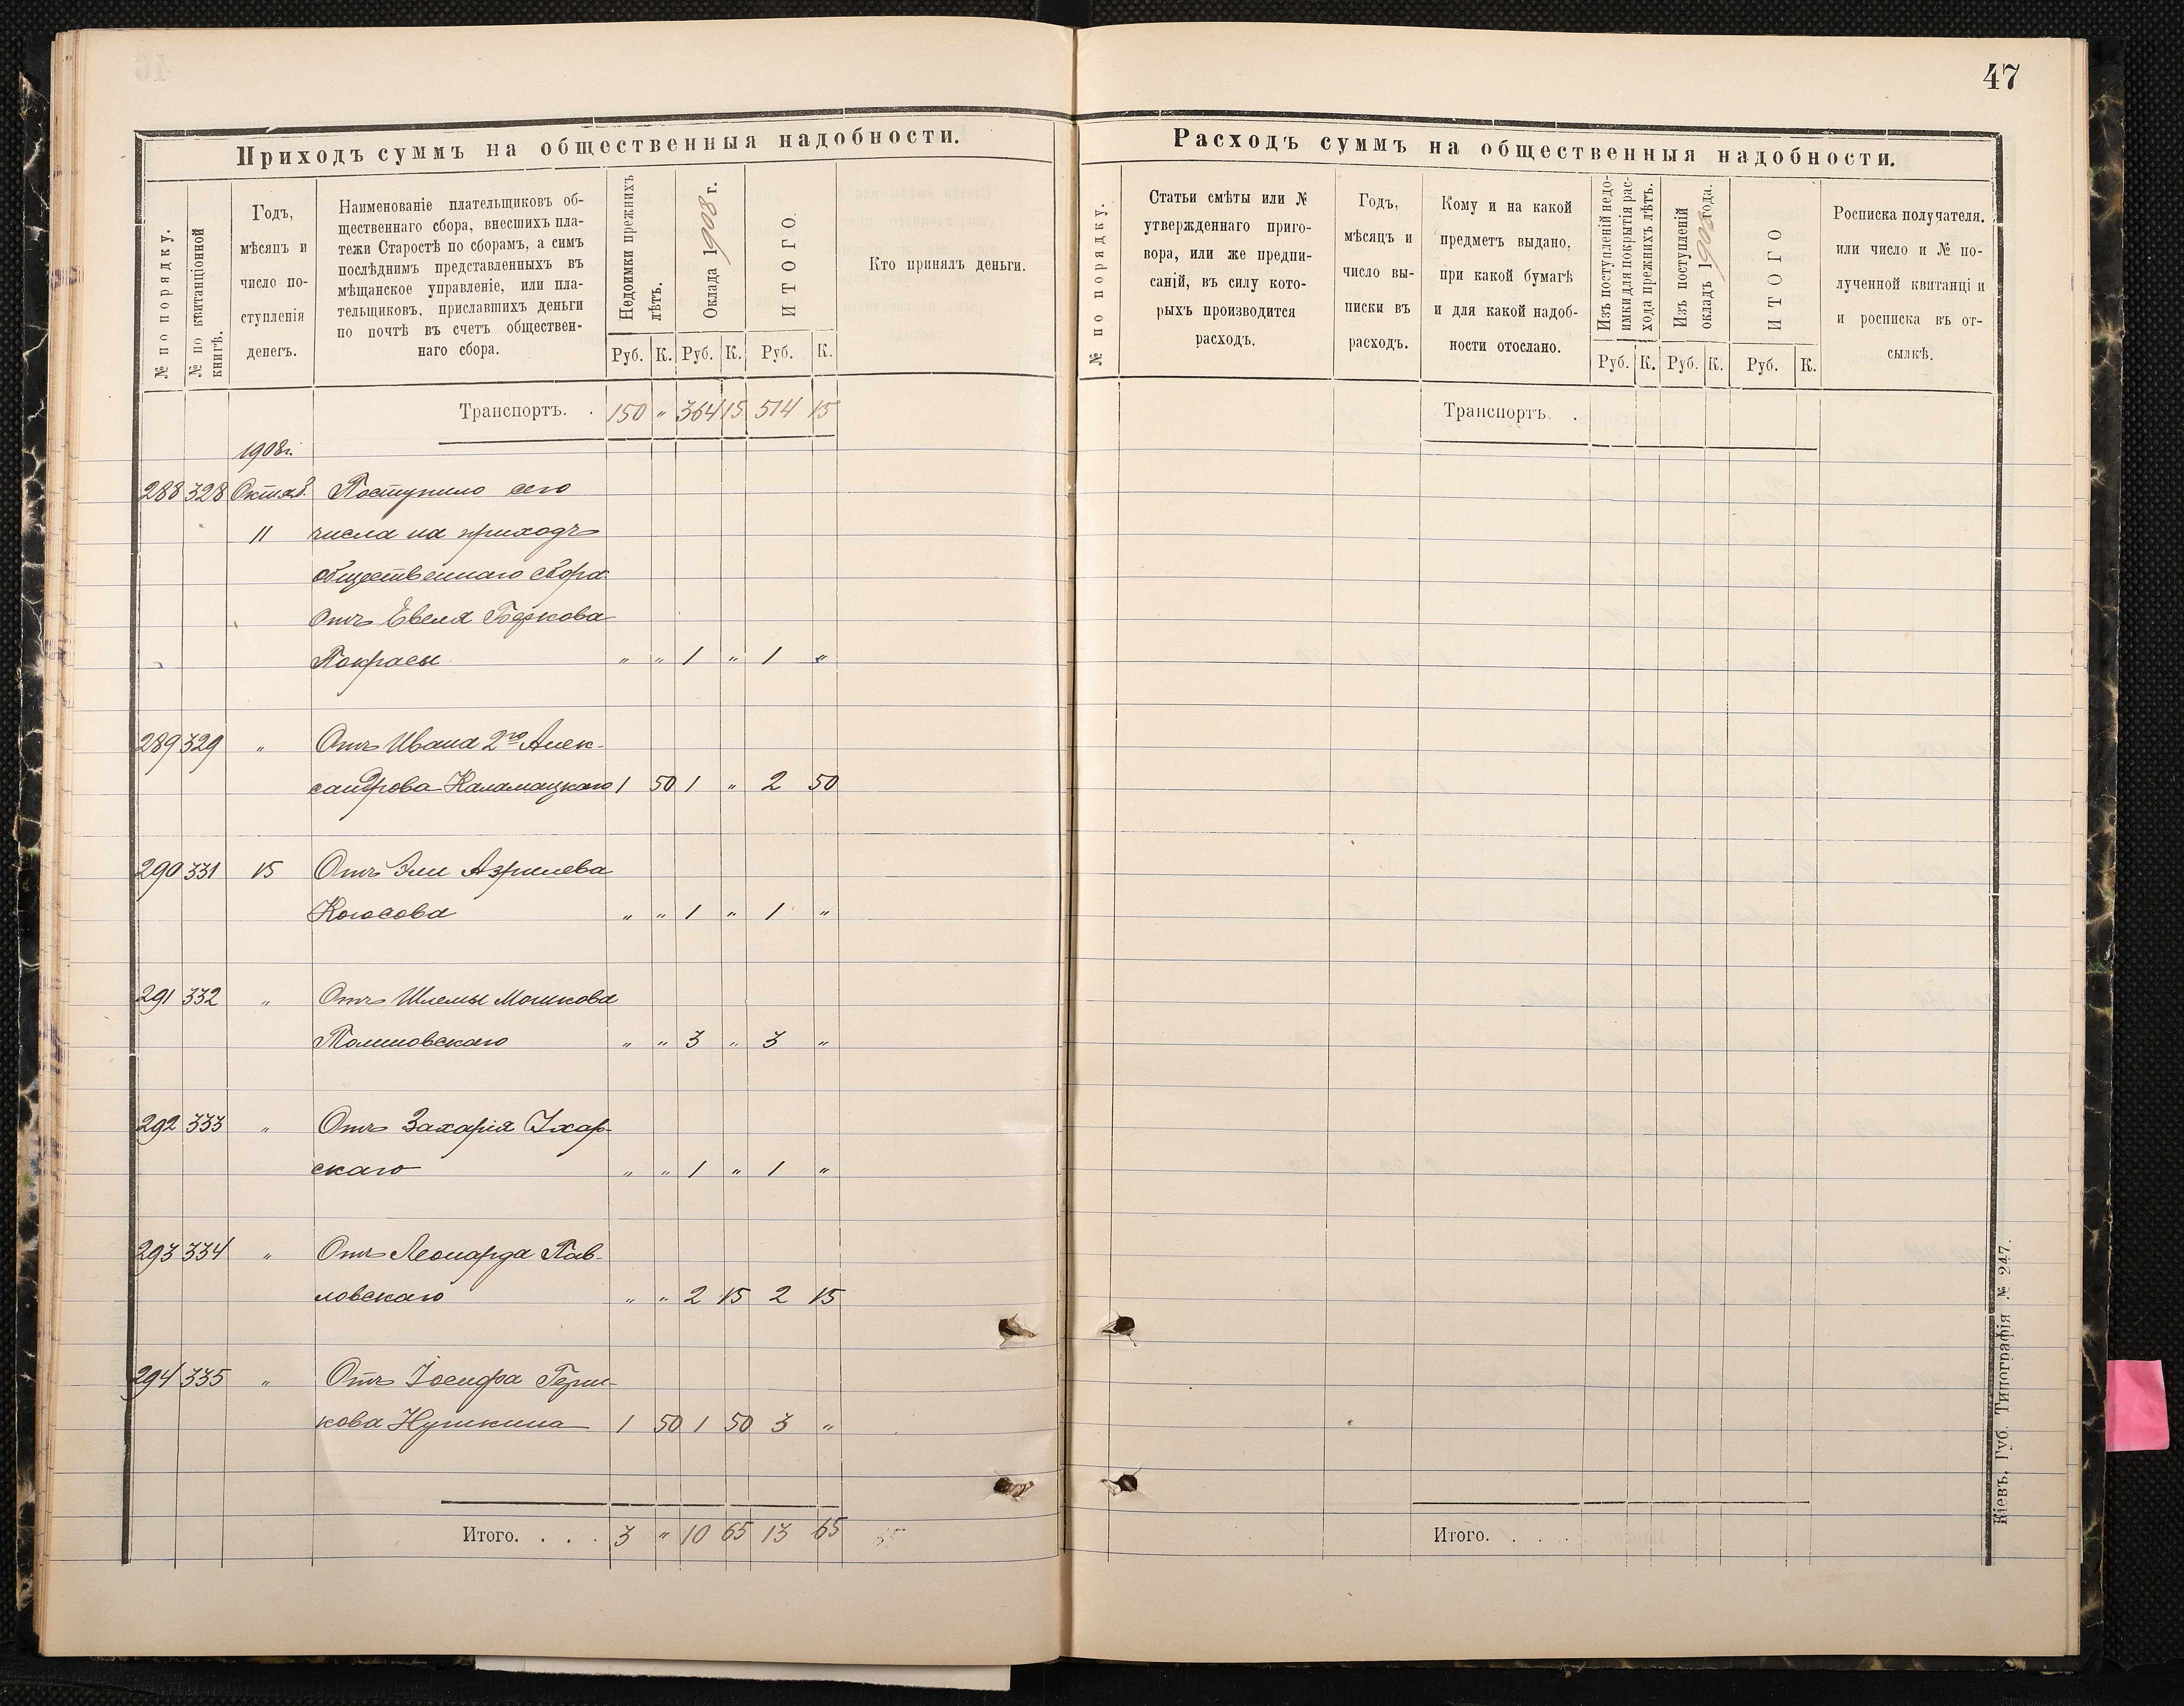 47
Приходъ суммъ на общественныя надобности.
№ по порядку.
№ по квитанціонной книгѣ.
Годъ,
мѣсяцъ и
число по-
ступленія
денегъ.
Наименованіе плательщиковъ об-
щественнаго сбора, внесшихъ пла-
тежи Старостѣ по сборамъ, а симъ
послѣднимъ представленныхъ въ
мѣщанское управленіе, или пла-
тельщиковъ, приславшихъ деньги
по почтѣ въ счетъ обществен-
наго сбора.
Недоимки прежнихъ лѣтъ.
Оклада 1908 г.
ИТОГО.
Кто принялъ деньги.
Руб. К. Руб. К. Руб. К.
Транспортъ. . 150 " 364 15 514 15
1908 г.
288 328 Октяб. Поступило сего
11 числа на приходъ
общественнаго сбора
Отъ Евеля Беркова
Покрасы " " 1 " 1 "
289 329 " Отъ Ивана 2го Алек-
сандрова Каламацкаго 1 50 1 " 2 50
290 331 15 Отъ Эли Азрилева
Когосова " " 1 " 1 "
291 332 " Отъ Шлемы Мошкова
" " 3 " 3 "
292 333 " Отъ Захарія
скаго " " 1 " 1 "
293 334 " Отъ Леонарда Пав-
ловскаго " " 2 15 2 15
294 335 " Отъ Іосифа Герш-
кова Нушкина 1 50 1 50 3 "
Итого. . . . 3 " 10 65 13 65
Расходъ суммъ на общественныя надобности.
№ по порядку.
Статьи смѣты или №
утвержденнаго приго-
вора, или же предпи-
саній, въ силу кото-
рыхъ производится
расходъ.
Годъ,
мѣсяцъ и
число вы-
писки въ
расходъ.
Кому и на какой
предметъ выдано,
при какой бумагѣ
и для какой надоб-
ности отослано.
Изъ поступленій недо-
имки для покрытія рас-
хода прежнихъ лѣтъ.
Изъ поступленій
окладъ 1908 года.
ИТОГО
Росписка получателя.
или число и № по-
лученной квитанці и
и росписка въ от-
сылкѣ.
Руб. К. Руб. К. Руб. К.
Транспортъ. .
Итого. . . .
Кіевъ, Губ. Типографія № 247.